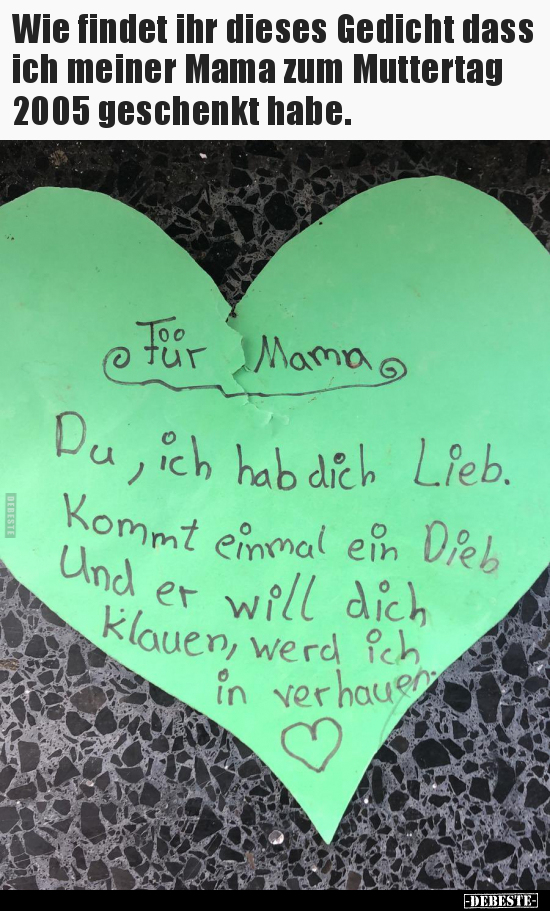 Wie findet ihr dieses Gedicht dass
ich meiner Mama zum Muttertag
2005 geschenkt habe.
Für Mama
Du, ich hab dich Lieb.
Kommt einmal ein Dieb
Und er will dich
klauen, werd ich
in verhauen.
DEBESTE
-DEBESTE-